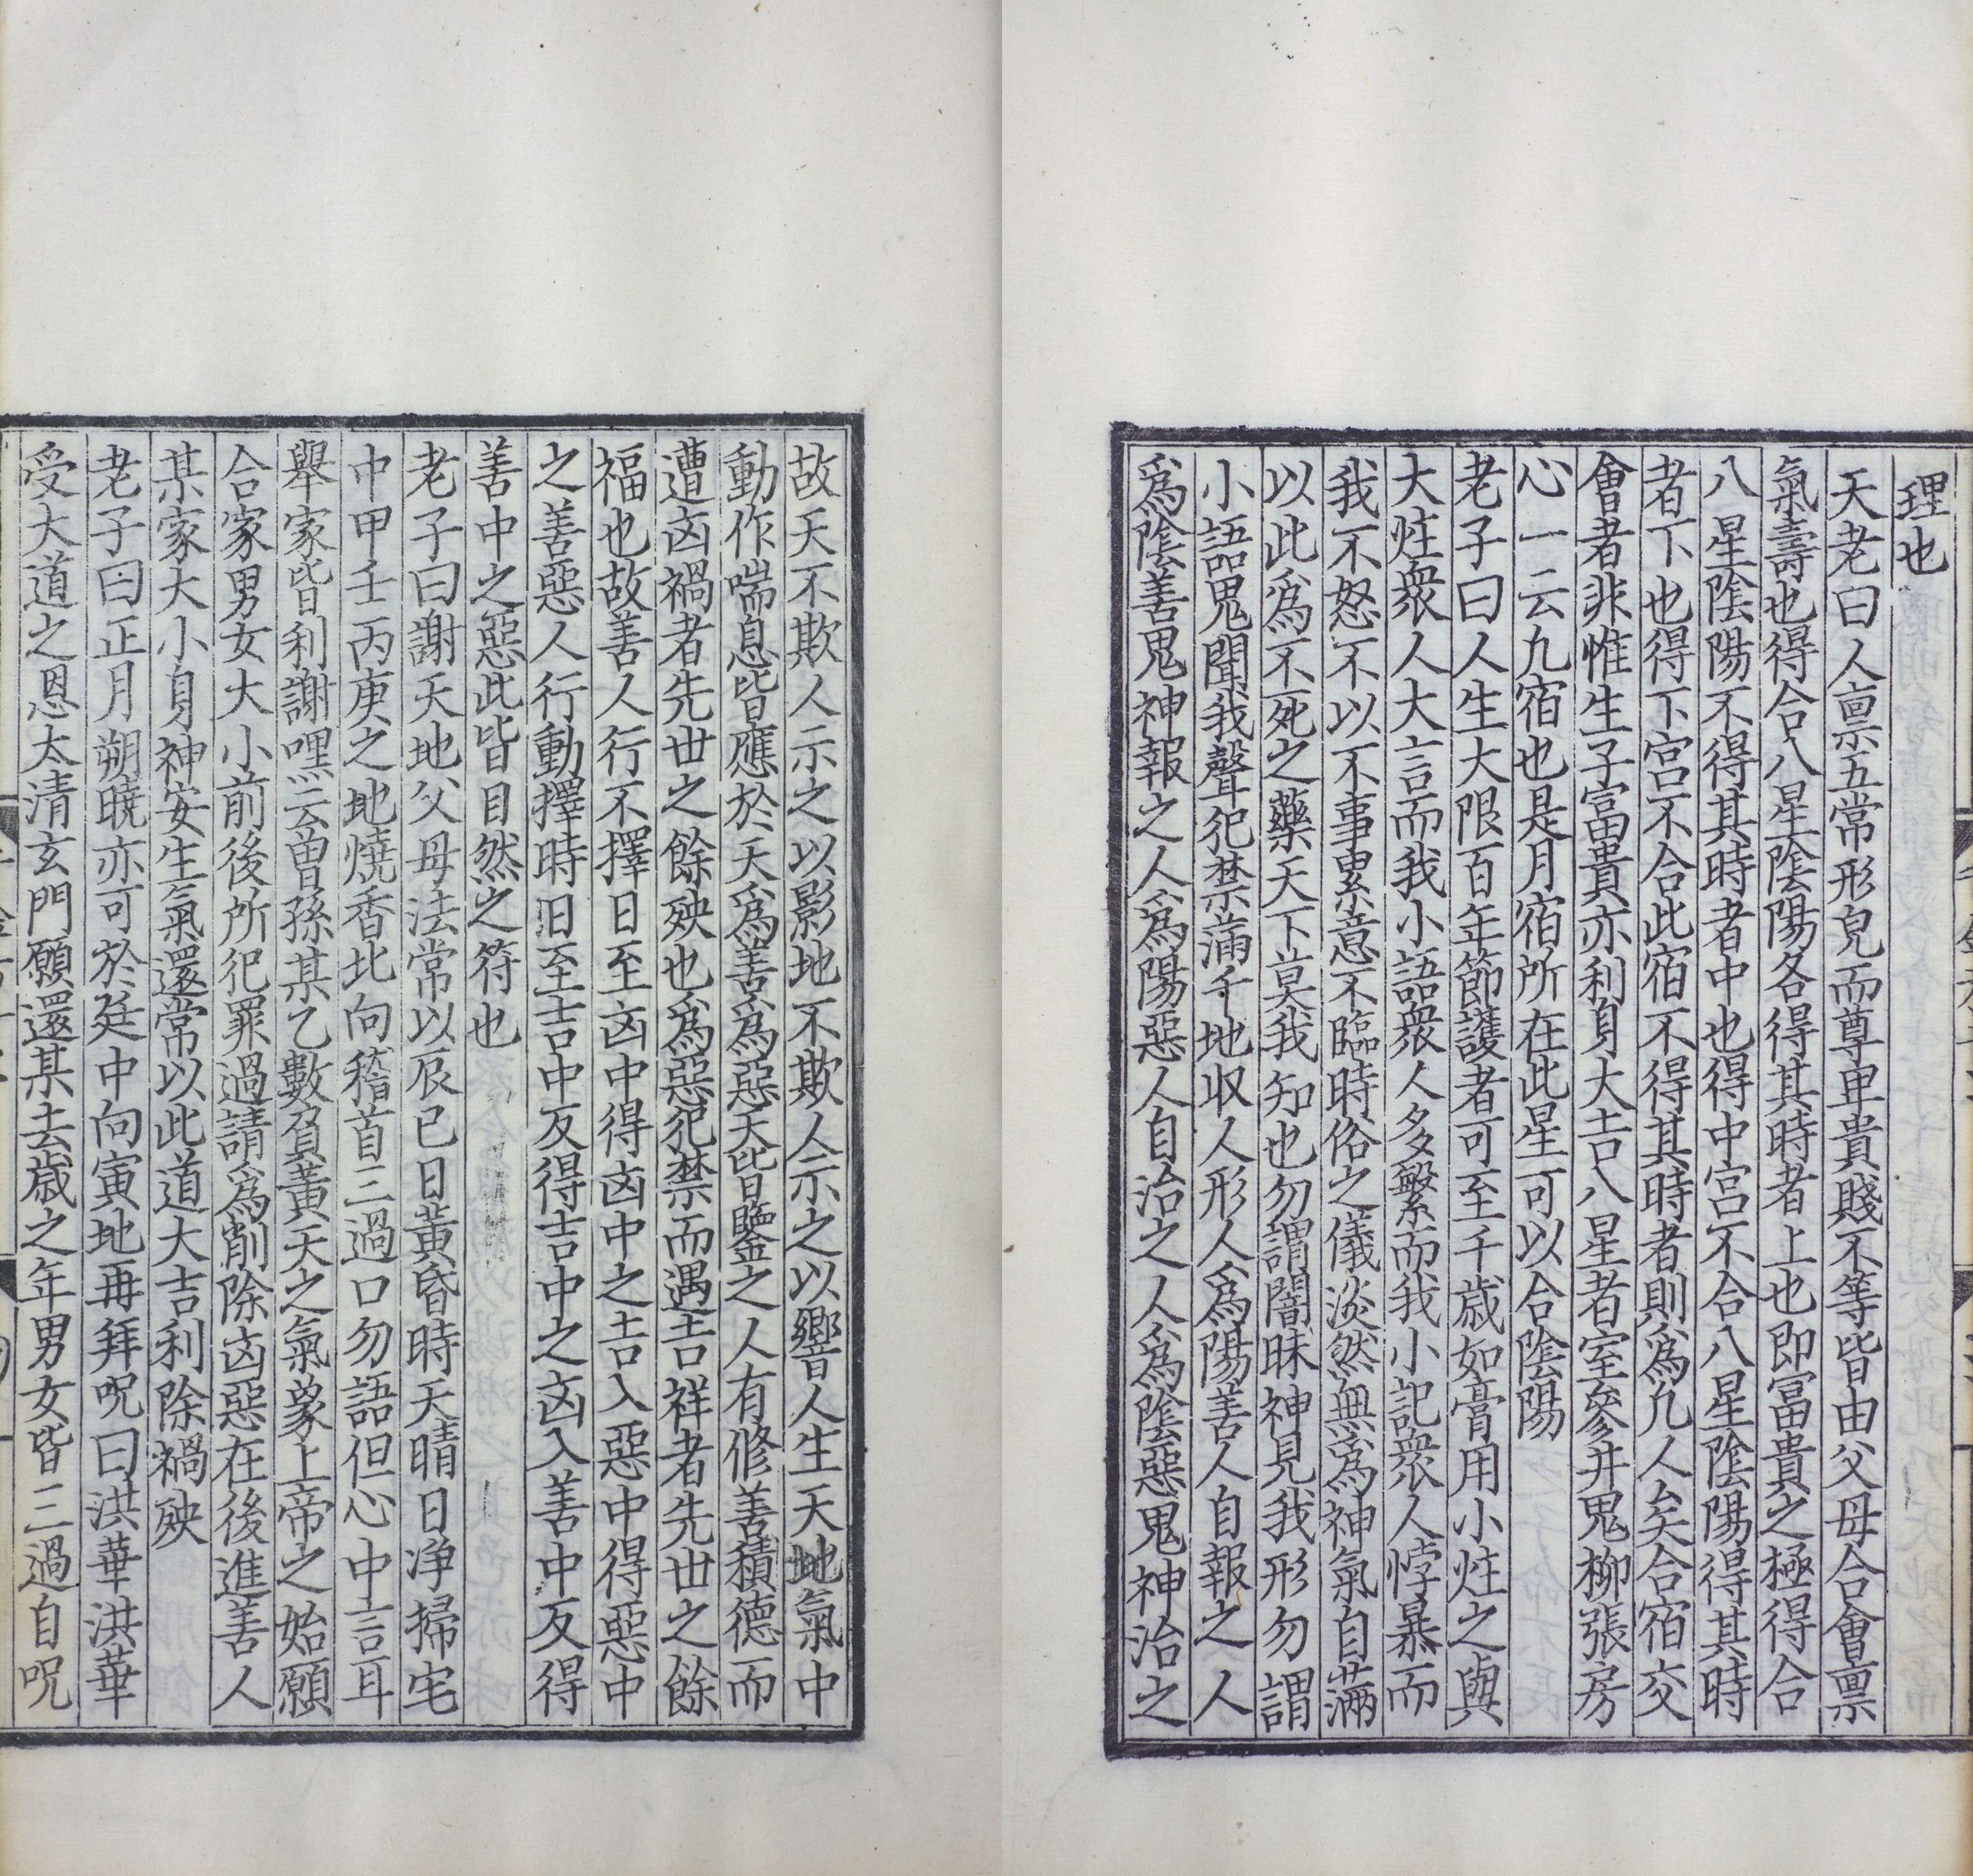 理也
天老曰人禀五常形皃而尊卑貴賤不等皆由父母合會禀
氣壽也得合八星陰陽各得其時者上也即冨貴之極得合
八星陰陽不得其時者中也得中宫不合八星陰陽得其時
者下也得下宫不合此宿不得其時者則爲凡人矣合宿交
會者非惟生子富貴亦利身大吉八星者室參井鬼柳張房
心一云九宿也是月宿所在此星可以合陰陽
老子曰人生大限百年節護者可至千歳如膏用小炷之與
大炷衆人大言而我小語衆人多繁而我小記衆人悖暴而
我不怒不以不事累意不臨時俗之儀淡然無爲神氣自滿
以此爲不死之藥天下莫我知也勿謂闇昧神見我形勿謂
小語鬼聞我聲犯禁滿千地収人形人爲陽善人自報之人
爲陰善鬼神報之人爲陽惡人自治之人爲陰惡鬼神治之
故天不欺人示之以影地不欺人示之以響人生天地氣中
動作喘息皆應於天爲善爲惡天皆鑒之人有修善積德而
遭凶禍者先世之餘殃也爲惡犯禁而遇吉祥者先世之餘
福也故善人行不擇日至凶中得凶中之吉入惡中得惡中
之善惡人行動擇時日至吉中反得吉中之凶入善中反得
善中之惡此皆目然之符也
老子曰謝天地父母法常以辰巳日黄昏時天晴日净掃宅
中甲壬丙庚之地燒香北向稽首三過口勿語但心中言耳
舉家皆利謝嘿云曽孫某乙數負黄天之氣象上帝之始願
合家男女大小前後所犯罪過請爲削除凶惡在後進善人
某家大小身神安生氣還常以此道大吉利除禍殃
老子曰正月朔曉亦可於庭中向寅地再拜呪曰洪華洪華
受大道之恩太清玄門願還某去歳之年男女皆三過自呪